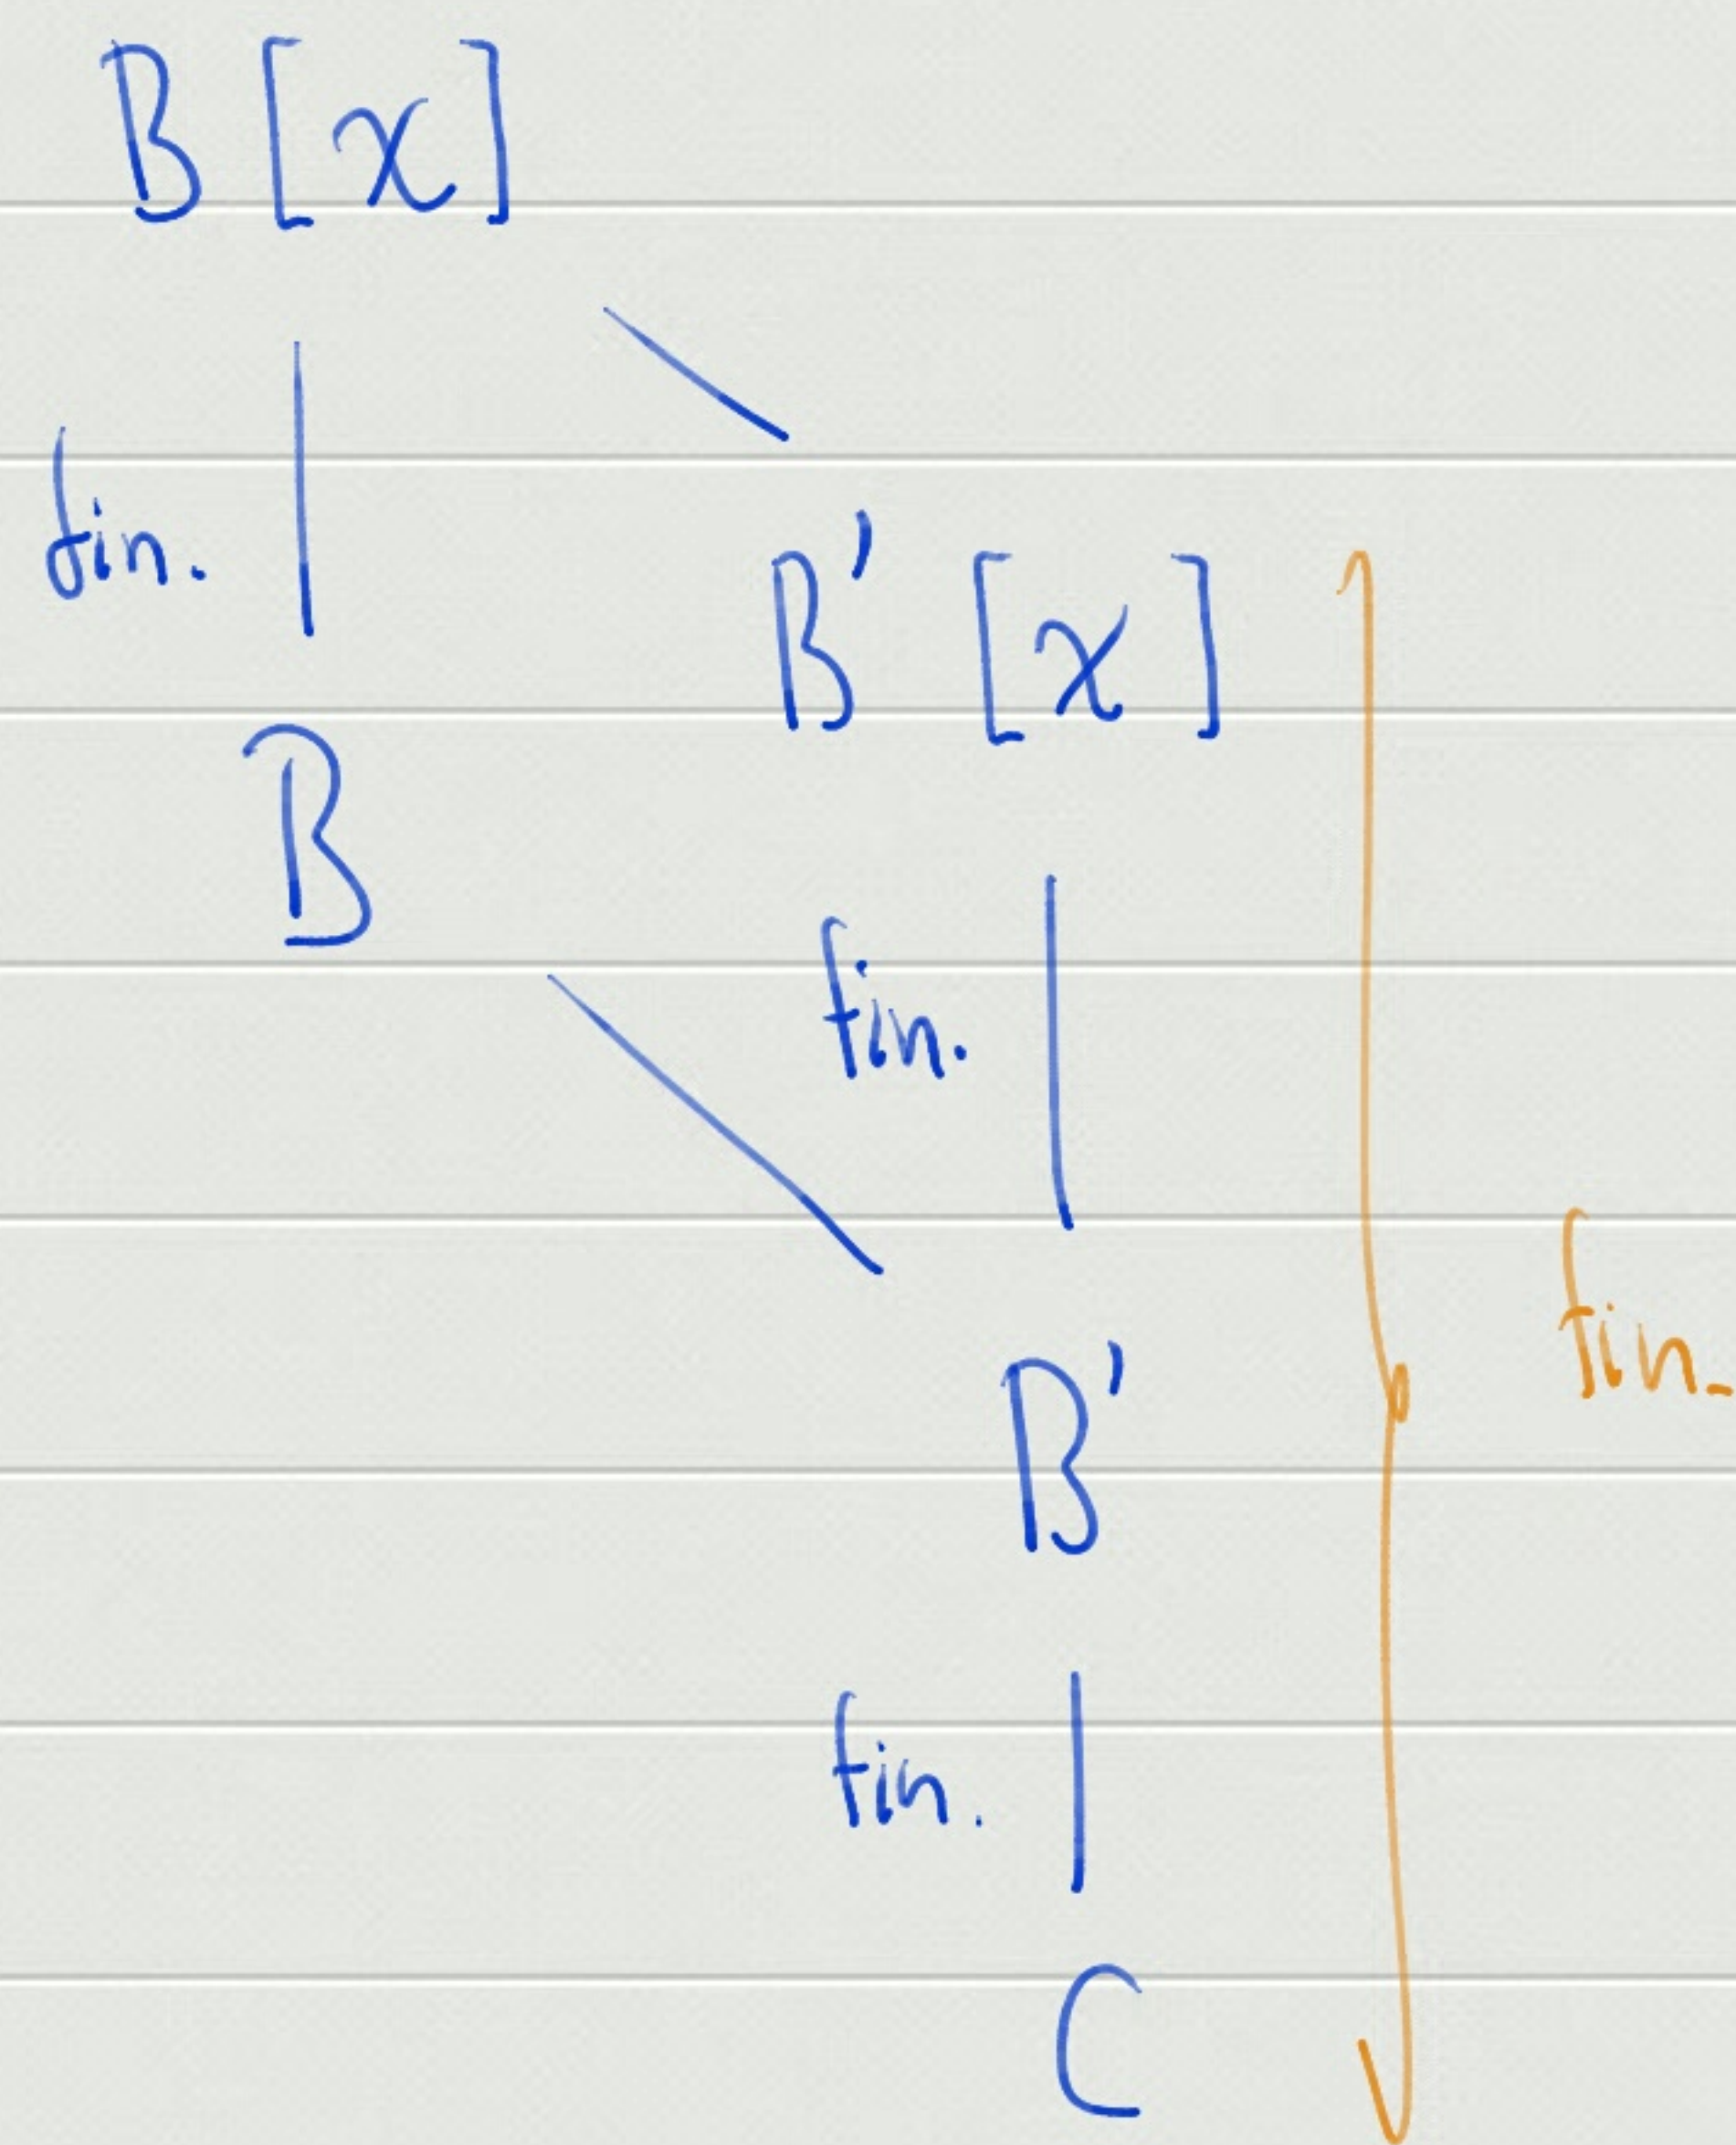 B [x]
fin.
B' [x]
B
fin.
fin.
B'
fin.
C